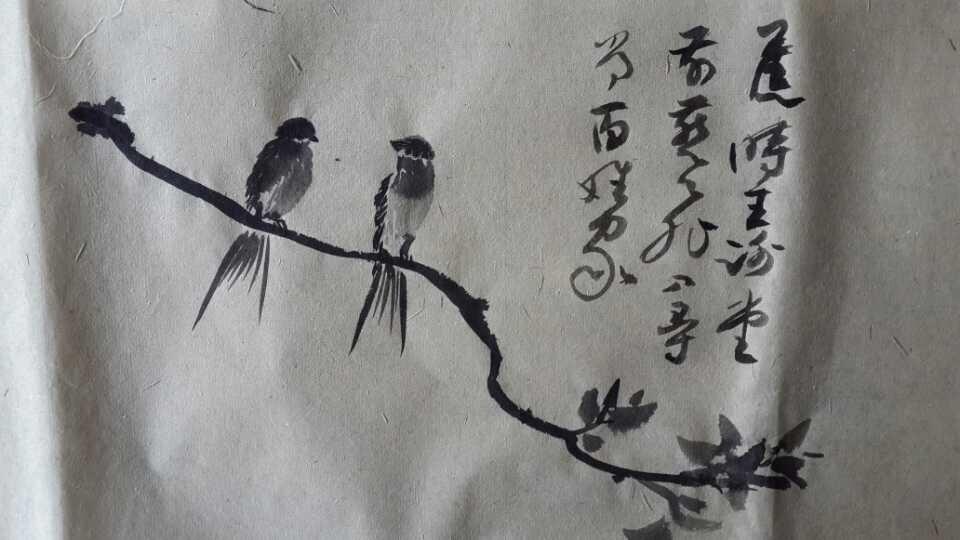 舊時王謝堂
前燕飛入尋
常百姓家